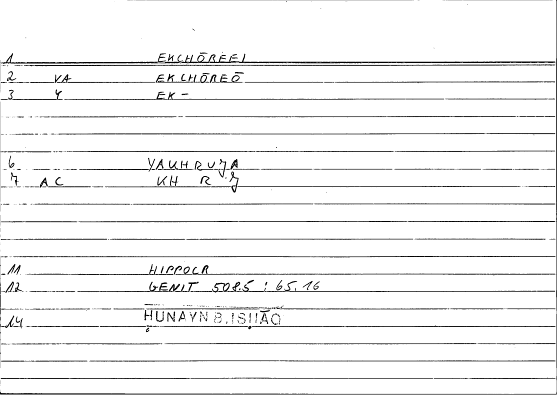 1 EKCHŌREEI
2 VA EKCHŌREŌ
3 Y EK-
6 YAUHRUJA
7 AC KH R J
11 HIPPOCR
12 GENIT 508.5 : 65.16
14 ḤUNAYN B. ISḤĀQ